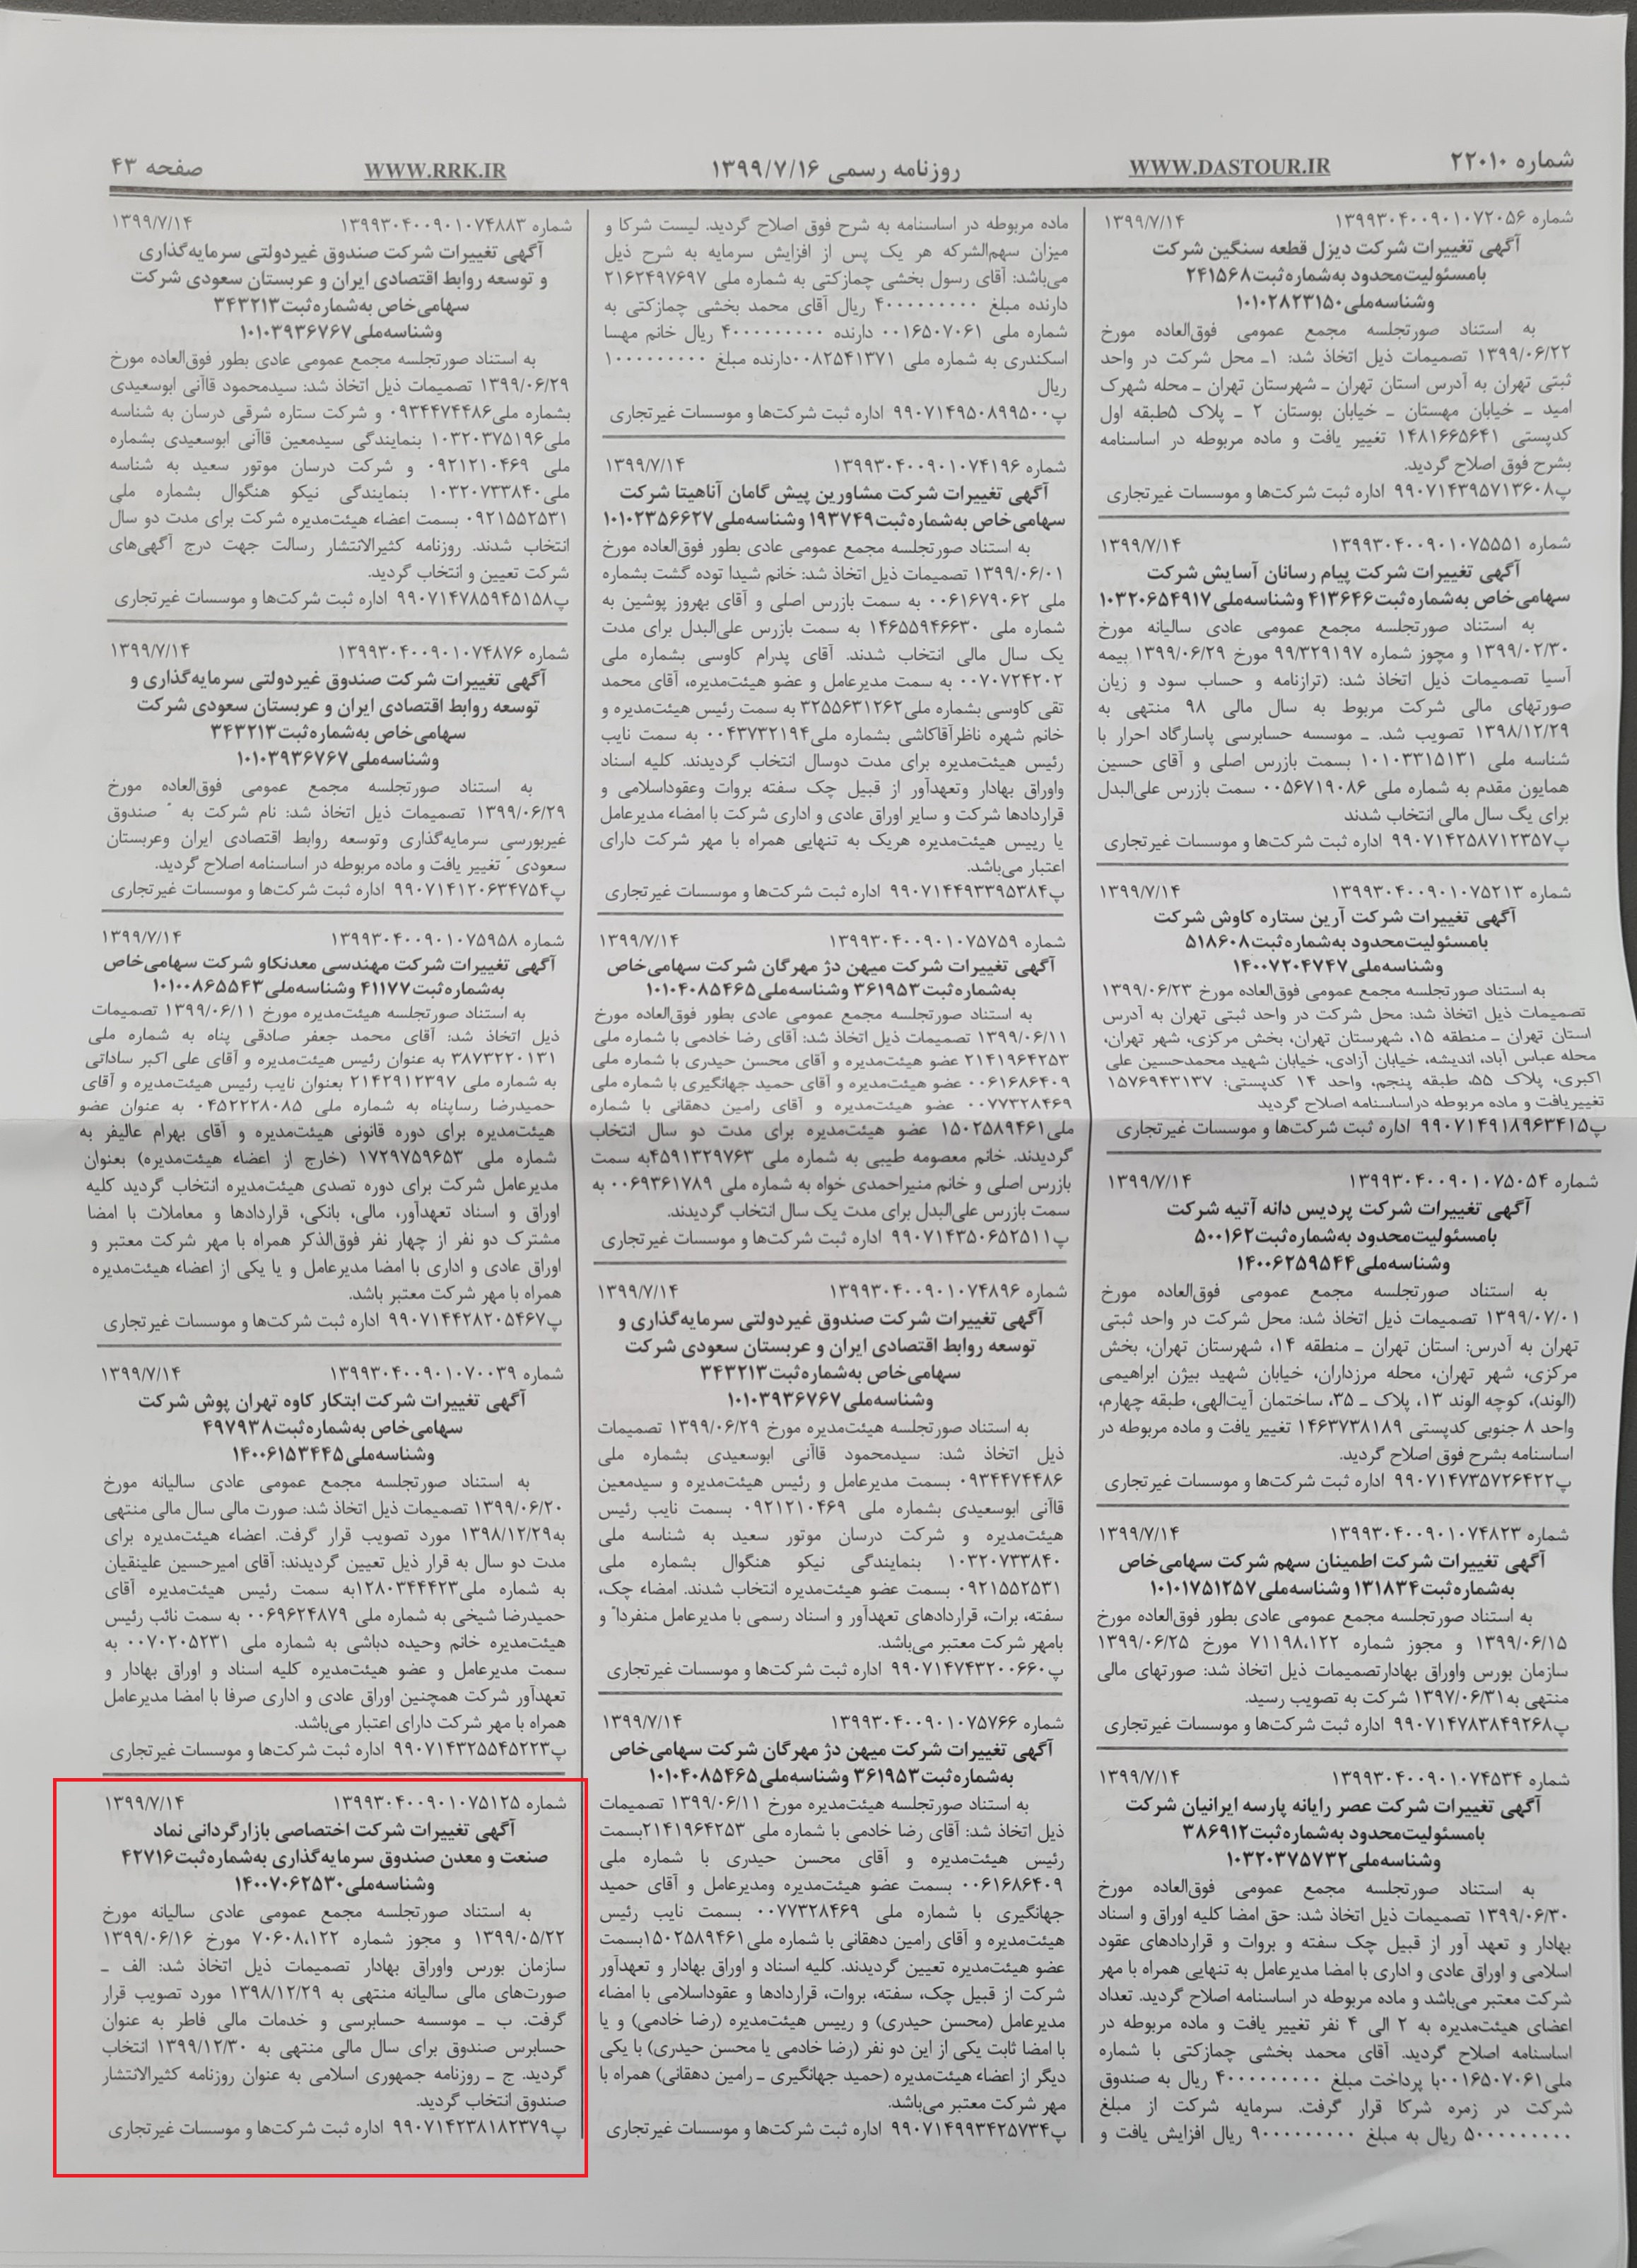 شماره ۲۲۰۱۰
WWW.DASTOUR.IR
روزنامه رسمی ۱۳۹۹/۷/۱۶
WWW.RRK.IR
صفحه ۴۳
شماره ۱۳۹۹۳۰۴۰۰۹۰۱۰۷۲۰۵۶ ۱۳۹۹/۷/۱۴
آگهی تغییرات شرکت دیزل قطعه سنگین شرکت
بامسئولیت‌محدود به‌شماره‌ثبت۲۴۱۵۶۸
وشناسه‌ملی۱۰۱۰۲۸۲۳۱۵۰
به استناد صورتجلسه مجمع عمومی فوق‌العاده مورخ
۱۳۹۹/۰۶/۲۲ تصمیمات ذیل اتخاذ شد: ۱ـ محل شرکت در واحد
ثبتی تهران به آدرس استان تهران ـ شهرستان تهران ـ محله شهرک
امید ـ خیابان مهستان ـ خیابان بوستان ۲ ـ پلاک ۵طبقه اول
کدپستی ۱۴۸۱۶۶۵۶۴۱ تغییر یافت و ماده مربوطه در اساسنامه
بشرح فوق اصلاح گردید.
پ۹۹۰۷۱۴۳۹۵۷۱۳۶۰۸ اداره ثبت شرکت‌ها و موسسات غیرتجاری
شماره ۱۳۹۹۳۰۴۰۰۹۰۱۰۷۵۵۵۱ ۱۳۹۹/۷/۱۴
آگهی تغییرات شرکت پیام رسانان آسایش شرکت
سهامی‌خاص به‌شماره‌ثبت۴۱۳۶۴۶ وشناسه‌ملی۱۰۳۲۰۶۵۴۹۱۷
به استناد صورتجلسه مجمع عمومی عادی سالیانه مورخ
۱۳۹۹/۰۲/۳۰ و مجوز شماره ۹۹/۳۲۹۱۹۷ مورخ ۱۳۹۹/۰۶/۲۹ بیمه
آسیا تصمیمات ذیل اتخاذ شد: (ترازنامه و حساب سود و زیان
صورتهای مالی شرکت مربوط به سال مالی ۹۸ منتهی به
۱۳۹۸/۱۲/۲۹ تصویب شد. ـ موسسه حسابرسی پاسارگاد احرار با
شناسه ملی ۱۰۱۰۳۳۱۵۱۳۱ بسمت بازرس اصلی و آقای حسین
همایون مقدم به شماره ملی ۰۰۵۶۷۱۹۰۸۶ سمت بازرس علی‌البدل
برای یک سال مالی انتخاب شدند
پ۹۹۰۷۱۴۲۵۸۷۱۲۳۵۷ اداره ثبت شرکت‌ها و موسسات غیرتجاری
شماره ۱۳۹۹۳۰۴۰۰۹۰۱۰۷۵۲۱۳ ۱۳۹۹/۷/۱۴
آگهی تغییرات شرکت آرین ستاره کاوش شرکت
بامسئولیت‌محدود به‌شماره‌ثبت۵۱۸۶۰۸
وشناسه‌ملی۱۴۰۰۷۲۰۴۷۴۷
به استناد صورتجلسه مجمع عمومی فوق‌العاده مورخ ۱۳۹۹/۰۶/۲۳
تصمیمات ذیل اتخاذ شد: محل شرکت در واحد ثبتی تهران به آدرس
استان تهران ـ منطقه ۱۵، شهرستان تهران، بخش مرکزی، شهر تهران،
محله عباس آباد، اندیشه، خیابان آزادی، خیابان شهید محمدحسین علی
اکبری، پلاک ۵۵، طبقه پنجم، واحد ۱۴ کدپستی: ۱۵۷۶۹۴۳۱۳۷
تغییریافت و ماده مربوطه دراساسنامه اصلاح گردید
پ۹۹۰۷۱۴۹۱۸۹۶۳۴۱۵ اداره ثبت شرکت‌ها و موسسات غیرتجاری
شماره ۱۳۹۹۳۰۴۰۰۹۰۱۰۷۵۰۵۴ ۱۳۹۹/۷/۱۴
آگهی تغییرات شرکت پردیس دانه آتیه شرکت
بامسئولیت‌محدود به‌شماره‌ثبت۵۰۰۱۶۲
وشناسه‌ملی۱۴۰۰۶۲۵۹۵۴۴
به استناد صورتجلسه مجمع عمومی فوق‌العاده مورخ
۱۳۹۹/۰۷/۰۱ تصمیمات ذیل اتخاذ شد: محل شرکت در واحد ثبتی
تهران به آدرس: استان تهران ـ منطقه ۱۴، شهرستان تهران، بخش
مرکزی، شهر تهران، محله مرزداران، خیابان شهید بیژن ابراهیمی
(الوند)، کوچه الوند ۱۳، پلاک ـ ۳۵، ساختمان آیت‌الهی، طبقه چهارم،
واحد ۸ جنوبی کدپستی ۱۴۶۳۷۳۸۱۸۹ تغییر یافت و ماده مربوطه در
اساسنامه بشرح فوق اصلاح گردید.
پ۹۹۰۷۱۴۷۳۵۷۲۶۴۲۲ اداره ثبت شرکت‌ها و موسسات غیرتجاری
شماره ۱۳۹۹۳۰۴۰۰۹۰۱۰۷۴۸۲۳ ۱۳۹۹/۷/۱۴
آگهی تغییرات شرکت اطمینان سهم شرکت سهامی‌خاص
به‌شماره‌ثبت۱۳۱۸۳۴ وشناسه‌ملی۱۰۱۰۱۷۵۱۲۵۷
به استناد صورتجلسه مجمع عمومی عادی بطور فوق‌العاده مورخ
۱۳۹۹/۰۶/۱۵ و مجوز شماره ۷۱۱۹۸،۱۲۲ مورخ ۱۳۹۹/۰۶/۲۵
سازمان بورس واوراق بهادارتصمیمات ذیل اتخاذ شد: صورتهای مالی
منتهی به۱۳۹۷/۰۶/۳۱ شرکت به تصویب رسید.
پ۹۹۰۷۱۴۷۸۳۸۴۹۲۶۸ اداره ثبت شرکت‌ها و موسسات غیرتجاری
شماره ۱۳۹۹۳۰۴۰۰۹۰۱۰۷۴۵۳۴ ۱۳۹۹/۷/۱۴
آگهی تغییرات شرکت عصر رایانه پارسه ایرانیان شرکت
بامسئولیت‌محدود به‌شماره‌ثبت۳۸۶۹۱۲
وشناسه‌ملی۱۰۳۲۰۳۷۵۷۳۲
به استناد صورتجلسه مجمع عمومی فوق‌العاده مورخ
۱۳۹۹/۰۶/۳۰ تصمیمات ذیل اتخاذ شد: حق امضا کلیه اوراق و اسناد
بهادار و تعهد آور از قبیل چک سفته و بروات و قراردادهای عقود
اسلامی و اوراق عادی و اداری با امضا مدیرعامل به تنهایی همراه با مهر
شرکت معتبر می‌باشد و ماده مربوطه در اساسنامه اصلاح گردید. تعداد
اعضای هیئت‌مدیره به ۲ الی ۴ نفر تغییر یافت و ماده مربوطه در
اساسنامه اصلاح گردید. آقای محمد بخشی چمازکتی با شماره
ملی۰۰۱۶۵۰۷۰۶۱با پرداخت مبلغ ۴۰۰۰۰۰۰۰۰۰ ریال به صندوق
شرکت در زمره شرکا قرار گرفت. سرمایه شرکت از مبلغ
۵۰۰۰۰۰۰۰۰۰ ریال به مبلغ ۹۰۰۰۰۰۰۰۰۰ ریال افزایش یافت و
ماده مربوطه در اساسنامه به شرح فوق اصلاح گردید. لیست شرکا و
میزان سهم‌الشرکه هر یک پس از افزایش سرمایه به شرح ذیل
می‌باشد: آقای رسول بخشی چمازکتی به شماره ملی ۲۱۶۲۴۹۷۶۹۷
دارنده مبلغ ۴۰۰۰۰۰۰۰۰۰ ریال آقای محمد بخشی چمازکتی به
شماره ملی ۰۰۱۶۵۰۷۰۶۱ دارنده ۴۰۰۰۰۰۰۰۰۰ ریال خانم مهسا
اسکندری به شماره ملی ۰۰۸۲۵۴۱۳۷۱دارنده مبلغ ۱۰۰۰۰۰۰۰۰۰
ریال
پ۹۹۰۷۱۴۹۵۰۸۹۹۵۰۰ اداره ثبت شرکت‌ها و موسسات غیرتجاری
شماره ۱۳۹۹۳۰۴۰۰۹۰۱۰۷۴۱۹۶ ۱۳۹۹/۷/۱۴
آگهی تغییرات شرکت مشاورین پیش گامان آناهیتا شرکت
سهامی‌خاص به‌شماره‌ثبت۱۹۳۷۴۹ وشناسه‌ملی۱۰۱۰۲۳۵۶۶۲۷
به استناد صورتجلسه مجمع عمومی عادی بطور فوق‌العاده مورخ
۱۳۹۹/۰۶/۰۱ تصمیمات ذیل اتخاذ شد: خانم شیدا توده گشت بشماره
ملی ۰۰۶۱۶۷۹۰۶۲ به سمت بازرس اصلی و آقای بهروز پوشین به
شماره ملی ۱۴۶۵۵۹۴۶۶۳۰ به سمت بازرس علی‌البدل برای مدت
یک سال مالی انتخاب شدند. آقای پدرام کاوسی بشماره ملی
۰۰۷۰۷۲۴۲۰۲ به سمت مدیرعامل و عضو هیئت‌مدیره، آقای محمد
تقی کاوسی بشماره ملی۳۲۵۵۶۳۱۲۶۲ به سمت رئیس هیئت‌مدیره و
خانم شهره ناظرآقاکاشی بشماره ملی۰۰۴۳۷۳۲۱۹۴ به سمت نایب
رئیس هیئت‌مدیره برای مدت دوسال انتخاب گردیدند. کلیه اسناد
واوراق بهادار وتعهدآور از قبیل چک سفته بروات وعقوداسلامی و
قراردادها شرکت و سایر اوراق عادی و اداری شرکت با امضاء مدیرعامل
یا رییس هیئت‌مدیره هریک به تنهایی همراه با مهر شرکت دارای
اعتبار می‌باشد.
پ۹۹۰۷۱۴۴۹۳۳۹۵۳۸۴ اداره ثبت شرکت‌ها و موسسات غیرتجاری
شماره ۱۳۹۹۳۰۴۰۰۹۰۱۰۷۵۷۵۹ ۱۳۹۹/۷/۱۴
آگهی تغییرات شرکت میهن دژ مهرگان شرکت سهامی‌خاص
به‌شماره‌ثبت۳۶۱۹۵۳ وشناسه‌ملی۱۰۱۰۴۰۸۵۴۶۵
به استناد صورتجلسه مجمع عمومی عادی بطور فوق‌العاده مورخ
۱۳۹۹/۰۶/۱۱ تصمیمات ذیل اتخاذ شد: آقای رضا خادمی با شماره ملی
۲۱۴۱۹۶۴۲۵۳ عضو هیئت‌مدیره و آقای محسن حیدری با شماره ملی
۰۰۶۱۶۸۶۴۰۹ عضو هیئت‌مدیره و آقای حمید جهانگیری با شماره ملی
۰۰۷۷۳۲۸۴۶۹ عضو هیئت‌مدیره و آقای رامین دهقانی با شماره
ملی۱۵۰۲۵۸۹۴۶۱ عضو هیئت‌مدیره برای مدت دو سال انتخاب
گردیدند. خانم معصومه طیبی به شماره ملی ۴۵۹۱۳۲۹۷۶۳به سمت
بازرس اصلی و خانم منیراحمدی خواه به شماره ملی ۰۰۶۹۳۶۱۷۸۹ به
سمت بازرس علی‌البدل برای مدت یک سال انتخاب گردیدند.
پ۹۹۰۷۱۴۳۵۰۶۵۲۵۱۱ اداره ثبت شرکت‌ها و موسسات غیرتجاری
شماره ۱۳۹۹۳۰۴۰۰۹۰۱۰۷۴۸۹۶ ۱۳۹۹/۷/۱۴
آگهی تغییرات شرکت صندوق غیردولتی سرمایه‌گذاری و
توسعه روابط اقتصادی ایران و عربستان سعودی شرکت
سهامی‌خاص به‌شماره‌ثبت۳۴۳۲۱۳
وشناسه‌ملی۱۰۱۰۳۹۳۶۷۶۷
به استناد صورتجلسه هیئت‌مدیره مورخ ۱۳۹۹/۰۶/۲۹ تصمیمات
ذیل اتخاذ شد: سیدمحمود قاآنی ابوسعیدی بشماره ملی
۰۹۳۴۴۷۴۴۸۶ بسمت مدیرعامل و رئیس هیئت‌مدیره و سیدمعین
قاآنی ابوسعیدی بشماره ملی ۰۹۲۱۲۱۰۴۶۹ بسمت نایب رئیس
هیئت‌مدیره و شرکت درسان موتور سعید به شناسه ملی
۱۰۳۲۰۷۳۳۸۴۰ بنمایندگی نیکو هنگوال بشماره ملی
۰۹۲۱۵۵۲۵۳۱ بسمت عضو هیئت‌مدیره انتخاب شدند. امضاء چک،
سفته، برات، قراردادهای تعهدآور و اسناد رسمی با مدیرعامل منفرداً و
بامهر شرکت معتبر می‌باشد.
پ۹۹۰۷۱۴۷۴۳۲۰۰۶۶۰ اداره ثبت شرکت‌ها و موسسات غیرتجاری
شماره ۱۳۹۹۳۰۴۰۰۹۰۱۰۷۵۷۶۶ ۱۳۹۹/۷/۱۴
آگهی تغییرات شرکت میهن دژ مهرگان شرکت سهامی‌خاص
به‌شماره‌ثبت۳۶۱۹۵۳ وشناسه‌ملی۱۰۱۰۴۰۸۵۴۶۵
به استناد صورتجلسه هیئت‌مدیره مورخ ۱۳۹۹/۰۶/۱۱ تصمیمات
ذیل اتخاذ شد: آقای رضا خادمی با شماره ملی ۲۱۴۱۹۶۴۲۵۳بسمت
رئیس هیئت‌مدیره و آقای محسن حیدری با شماره ملی
۰۰۶۱۶۸۶۴۰۹ بسمت عضو هیئت‌مدیره ومدیرعامل و آقای حمید
جهانگیری با شماره ملی ۰۰۷۷۳۲۸۴۶۹ بسمت نایب رئیس
هیئت‌مدیره و آقای رامین دهقانی با شماره ملی۱۵۰۲۵۸۹۴۶۱بسمت
عضو هیئت‌مدیره تعیین گردیدند. کلیه اسناد و اوراق بهادار و تعهدآور
شرکت از قبیل چک، سفته، بروات، قراردادها و عقوداسلامی با امضاء
مدیرعامل (محسن حیدری) و رییس هیئت‌مدیره (رضا خادمی) و یا
با امضا ثابت یکی از این دو نفر (رضا خادمی یا محسن حیدری) با یکی
دیگر از اعضاء هیئت‌مدیره (حمید جهانگیری ـ رامین دهقانی) همراه با
مهر شرکت معتبر می‌باشد.
پ۹۹۰۷۱۴۹۹۳۴۲۵۷۳۴ اداره ثبت شرکت‌ها و موسسات غیرتجاری
شماره ۱۳۹۹۳۰۴۰۰۹۰۱۰۷۴۸۸۳ ۱۳۹۹/۷/۱۴
آگهی تغییرات شرکت صندوق غیردولتی سرمایه‌گذاری
و توسعه روابط اقتصادی ایران و عربستان سعودی شرکت
سهامی‌خاص به‌شماره‌ثبت۳۴۳۲۱۳
وشناسه‌ملی۱۰۱۰۳۹۳۶۷۶۷
به استناد صورتجلسه مجمع عمومی عادی بطور فوق‌العاده مورخ
۱۳۹۹/۰۶/۲۹ تصمیمات ذیل اتخاذ شد: سیدمحمود قاآنی ابوسعیدی
بشماره ملی۰۹۳۴۴۷۴۴۸۶ و شرکت ستاره شرقی درسان به شناسه
ملی۱۰۳۲۰۳۷۵۱۹۶ بنمایندگی سیدمعین قاآنی ابوسعیدی بشماره
ملی ۰۹۲۱۲۱۰۴۶۹ و شرکت درسان موتور سعید به شناسه
ملی۱۰۳۲۰۷۳۳۸۴۰ بنمایندگی نیکو هنگوال بشماره ملی
۰۹۲۱۵۵۲۵۳۱ بسمت اعضاء هیئت‌مدیره شرکت برای مدت دو سال
انتخاب شدند. روزنامه کثیرالانتشار رسالت جهت درج آگهی‌های
شرکت تعیین و انتخاب گردید.
پ۹۹۰۷۱۴۷۸۵۹۴۵۱۵۸ اداره ثبت شرکت‌ها و موسسات غیرتجاری
شماره ۱۳۹۹۳۰۴۰۰۹۰۱۰۷۴۸۷۶ ۱۳۹۹/۷/۱۴
آگهی تغییرات شرکت صندوق غیردولتی سرمایه‌گذاری و
توسعه روابط اقتصادی ایران و عربستان سعودی شرکت
سهامی‌خاص به‌شماره‌ثبت۳۴۳۲۱۳
وشناسه‌ملی۱۰۱۰۳۹۳۶۷۶۷
به استناد صورتجلسه مجمع عمومی فوق‌العاده مورخ
۱۳۹۹/۰۶/۲۹ تصمیمات ذیل اتخاذ شد: نام شرکت به ” صندوق
غیربورسی سرمایه‌گذاری وتوسعه روابط اقتصادی ایران وعربستان
سعودی ” تغییر یافت و ماده مربوطه در اساسنامه اصلاح گردید.
پ۹۹۰۷۱۴۱۲۰۶۳۴۷۵۴ اداره ثبت شرکت‌ها و موسسات غیرتجاری
شماره ۱۳۹۹۳۰۴۰۰۹۰۱۰۷۵۹۵۸ ۱۳۹۹/۷/۱۴
آگهی تغییرات شرکت مهندسی معدنکاو شرکت سهامی‌خاص
به‌شماره‌ثبت۴۱۱۷۷ وشناسه‌ملی۱۰۱۰۰۸۶۵۵۴۳
به استناد صورتجلسه هیئت‌مدیره مورخ ۱۳۹۹/۰۶/۱۱ تصمیمات
ذیل اتخاذ شد: آقای محمد جعفر صادقی پناه به شماره ملی
۳۸۷۳۲۲۰۱۳۱ به عنوان رئیس هیئت‌مدیره و آقای علی اکبر ساداتی
به شماره ملی ۲۱۴۲۹۱۲۳۹۷ بعنوان نایب رئیس هیئت‌مدیره و آقای
حمیدرضا رساپناه به شماره ملی ۰۴۵۲۲۲۸۰۸۵ به عنوان عضو
هیئت‌مدیره برای دوره قانونی هیئت‌مدیره و آقای بهرام عالیفر به
شماره ملی ۱۷۲۹۷۵۹۶۵۳ (خارج از اعضاء هیئت‌مدیره) بعنوان
مدیرعامل شرکت برای دوره تصدی هیئت‌مدیره انتخاب گردید کلیه
اوراق و اسناد تعهدآور، مالی، بانکی، قراردادها و معاملات با امضا
مشترک دو نفر از چهار نفر فوق‌الذکر همراه با مهر شرکت معتبر و
اوراق عادی و اداری با امضا مدیرعامل و یا یکی از اعضاء هیئت‌مدیره
همراه با مهر شرکت معتبر باشد.
پ۹۹۰۷۱۴۴۲۸۲۰۵۴۶۷ اداره ثبت شرکت‌ها و موسسات غیرتجاری
شماره ۱۳۹۹۳۰۴۰۰۹۰۱۰۷۰۰۳۹ ۱۳۹۹/۷/۱۴
آگهی تغییرات شرکت ابتکار کاوه تهران پوش شرکت
سهامی‌خاص به‌شماره‌ثبت۴۹۷۹۳۸
وشناسه‌ملی۱۴۰۰۶۱۵۳۴۴۵
به استناد صورتجلسه مجمع عمومی عادی سالیانه مورخ
۱۳۹۹/۰۶/۲۰ تصمیمات ذیل اتخاذ شد: صورت مالی سال مالی منتهی
به۱۳۹۸/۱۲/۲۹ مورد تصویب قرار گرفت. اعضاء هیئت‌مدیره برای
مدت دو سال به قرار ذیل تعیین گردیدند: آقای امیرحسین علینقیان
به شماره ملی۱۲۸۰۳۴۴۴۲۳به سمت رئیس هیئت‌مدیره آقای
حمیدرضا شیخی به شماره ملی ۰۰۶۹۶۲۴۸۷۹ به سمت نائب رئیس
هیئت‌مدیره خانم وحیده دباشی به شماره ملی ۰۰۷۰۲۰۵۲۳۱ به
سمت مدیرعامل و عضو هیئت‌مدیره کلیه اسناد و اوراق بهادار و
تعهدآور شرکت همچنین اوراق عادی و اداری صرفا با امضا مدیرعامل
همراه با مهر شرکت دارای اعتبار می‌باشد.
پ۹۹۰۷۱۴۳۲۵۵۴۵۲۲۳ اداره ثبت شرکت‌ها و موسسات غیرتجاری
شماره ۱۳۹۹۳۰۴۰۰۹۰۱۰۷۵۱۲۵ ۱۳۹۹/۷/۱۴
آگهی تغییرات شرکت اختصاصی بازارگردانی نماد
صنعت و معدن صندوق سرمایه‌گذاری به‌شماره‌ثبت۴۲۷۱۶
وشناسه‌ملی۱۴۰۰۷۰۶۲۵۳۰
به استناد صورتجلسه مجمع عمومی عادی سالیانه مورخ
۱۳۹۹/۰۵/۲۲ و مجوز شماره ۷۰۶۰۸،۱۲۲ مورخ ۱۳۹۹/۰۶/۱۶
سازمان بورس واوراق بهادار تصمیمات ذیل اتخاذ شد: الف ـ
صورت‌های مالی سالیانه منتهی به ۱۳۹۸/۱۲/۲۹ مورد تصویب قرار
گرفت. ب ـ موسسه حسابرسی و خدمات مالی فاطر به عنوان
حسابرس صندوق برای سال مالی منتهی به ۱۳۹۹/۱۲/۳۰ انتخاب
گردید. ج ـ روزنامه جمهوری اسلامی به عنوان روزنامه کثیرالانتشار
صندوق انتخاب گردید.
پ۹۹۰۷۱۴۲۳۸۱۸۲۳۷۹ اداره ثبت شرکت‌ها و موسسات غیرتجاری